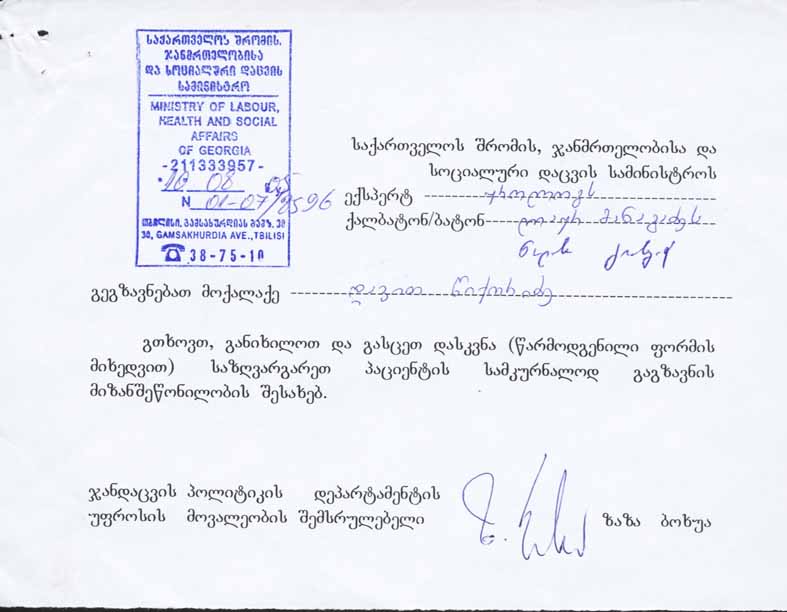 საქართველოს შრომის,
ჯანმრთელობისა
და სოციალური დაცვის
სამინისტრო
MINISTRY OF LABOUR,
HEALTH AND SOCIAL
AFFAIRS
OF GEORGIA
-211333957-
10 08 05
N 01-07/2596
თბილისი, გამსახურდიას გამზ. 30
30, GAMSAKHURDIA AVE., TBILISI
38-75-10
საქართველოს შრომის, ჯანმრთელობისა და
სოციალური დაცვის სამინისტროს
ექსპერტ
ქალბატონ/ბატონ
გეგზავნებათ მოქალაქე დავით
გთხოვთ, განიხილოთ და გასცეთ დასკვნა (წარმოდგენილი ფორმის
მიხედვით) საზღვარგარეთ პაციენტის სამკურნალოდ გაგზავნის
მიზანშეწონილობის შესახებ.
ჯანდაცვის პოლიტიკის დეპარტამენტის
უფროსის მოვალეობის შემსრულებელი ზაზა ბოხუა